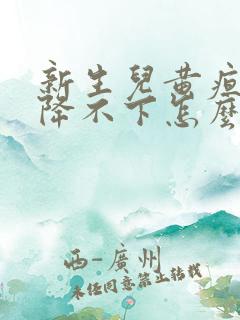 新生兒黃疸
降不下怎麼
西-廣州
未经同意禁止转载